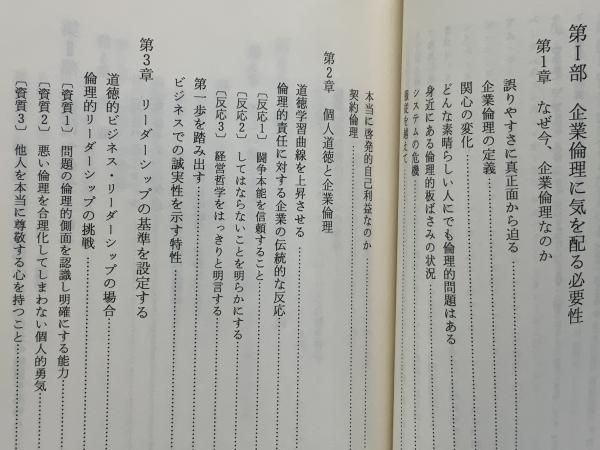 第Ⅰ部　企業倫理に気を配る必要性
第1章　なぜ今、企業倫理なのか
誤りやすさに真正面から迫る
企業倫理の定義
関心の変化
どんな素晴らしい人にでも倫理的問題はある
身近にある倫理的板ばさみの状況
システムの危機
本当に啓発的自己利益なのか
契約倫理
第2章　個人道徳と企業倫理
道徳学習曲線を上昇させる
倫理的責任に対する企業の伝統的な反応
〔反応1〕　闘争本能を信頼すること
〔反応2〕　してはならないことを明らかにする
〔反応3〕　経営哲学をはっきりと明言する
第一歩を踏み出す
ビジネスでの誠実性を示す特性
第3章　リーダーシップの基準を設定する
道徳的ビジネス・リーダーシップの場合
倫理的リーダーシップの挑戦
〔資質1〕　問題の倫理的側面を認識し明確にする能力
〔資質2〕　悪い倫理を合理化してしまわない個人的勇気
〔資質3〕　他人を本当に尊敬する心を持つこと